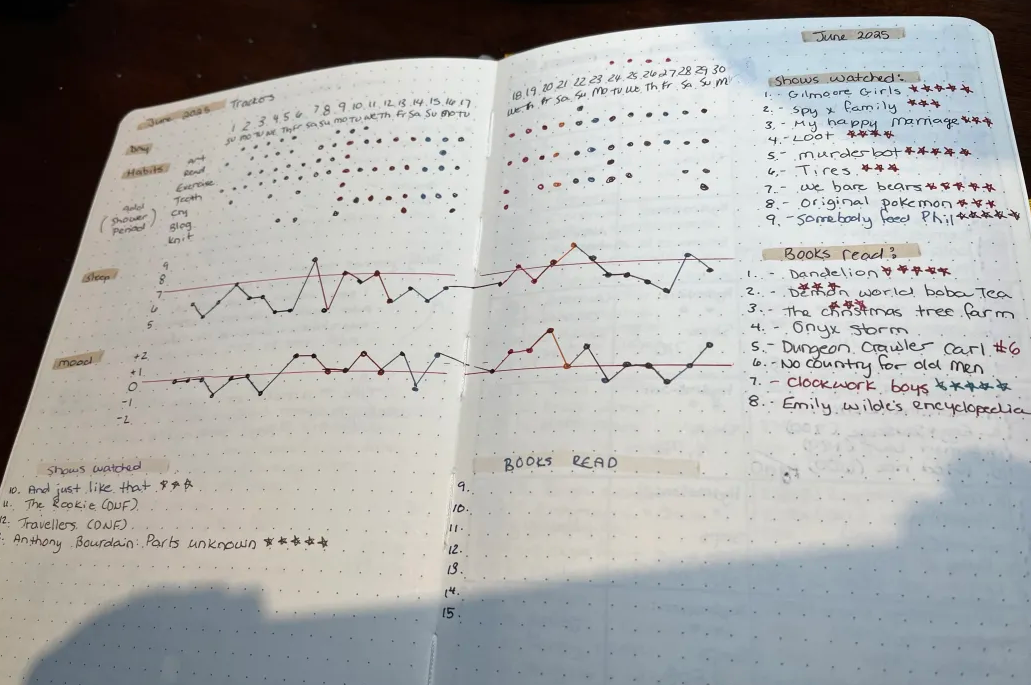 June 2025 Trackers
1 2 3 4 5 6 7 8 9 10 11 12 13 14 15 16 17
Su mo Tu We Th Fr Sa Su mo Tu We Th Fr Sa Su mo Tu
Day
Habits
Art
Read
Exercise
Teeth
Cry
Blog
knit
(Shower
Period)
Sleep
9
8
7
6
5
mood
+2
+1
0
-1
-2
Shows watched
10. And just like that ☆☆☆
11. The Rookie (DNF)
12. Travellers (DNF)
Anthony Bourdain: Parts unknown ★★★★★
18 19 20 21 22 23 24 25 26 27 28 29 30
We Th Fr Sa Su Mo Tu We Th Fr Sa Su M
BOOKS READ
9.
10.
11.
12.
13.
14.
15.
June 2025
Shows watched:
1.- Gilmore Girls ★★★★★
2.- Spy x family ★★★
3.- My happy Marriage ★★★
4.- Loot ★★★★
5.- murderbot ★★★★★
6.- Tires ★★★
7.- we bare bears ★★★★★
8.- original pokemon ★★★
9.- Somebody feed Phil ★★★★★
Books read:
1.- Dandelion ★★★★★
2.- Demon world boba Tea ★★★
3.- The christmas tree farm ★★★
4.- Onyx Storm
5.- Dungeon Crawler Carl #6
6.- No country for old men
7.- Clockwork boys ★★★★★
8.- Emily wilde's encyclopedia